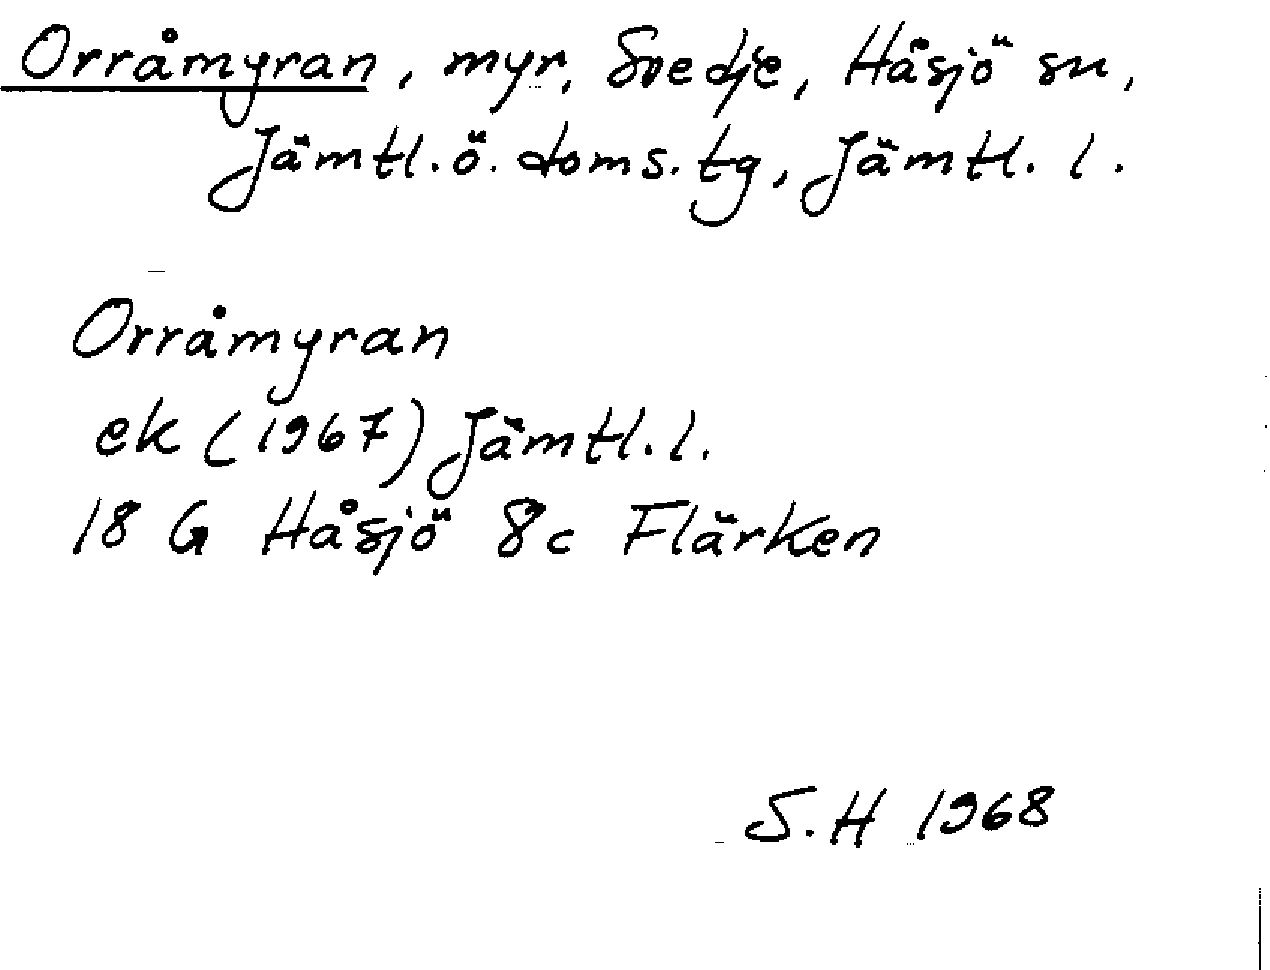 Orråmyran, myr, Svedje, Håsjö sn,
Jämtl. ö. doms. tg, Jämtl. l.
Orråmyran
ek (1967) Jämtl. l.
18 G Håsjö 8c Flärken
S.H 1968